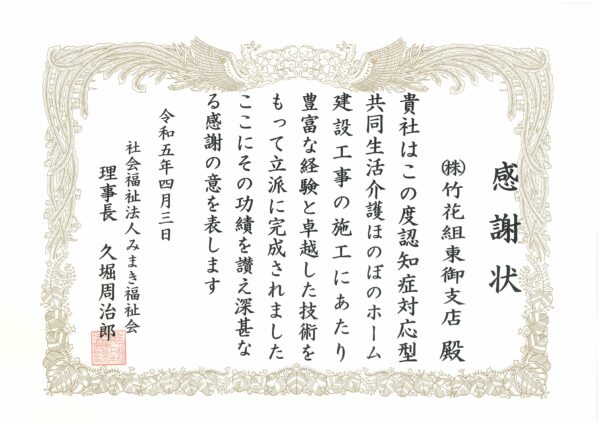 感謝状
㈱竹花組東御支店 殿
貴社はこの度認知症対応型
共同生活介護ほのぼのホーム
建設工事の施工にあたり
豊富な経験と卓越した技術を
もって立派に完成されました
ここにその功績を讃え深甚な
る感謝の意を表します
令和五年四月三日
社会福祉法人みまき福祉会
理事長 久堀周治郎